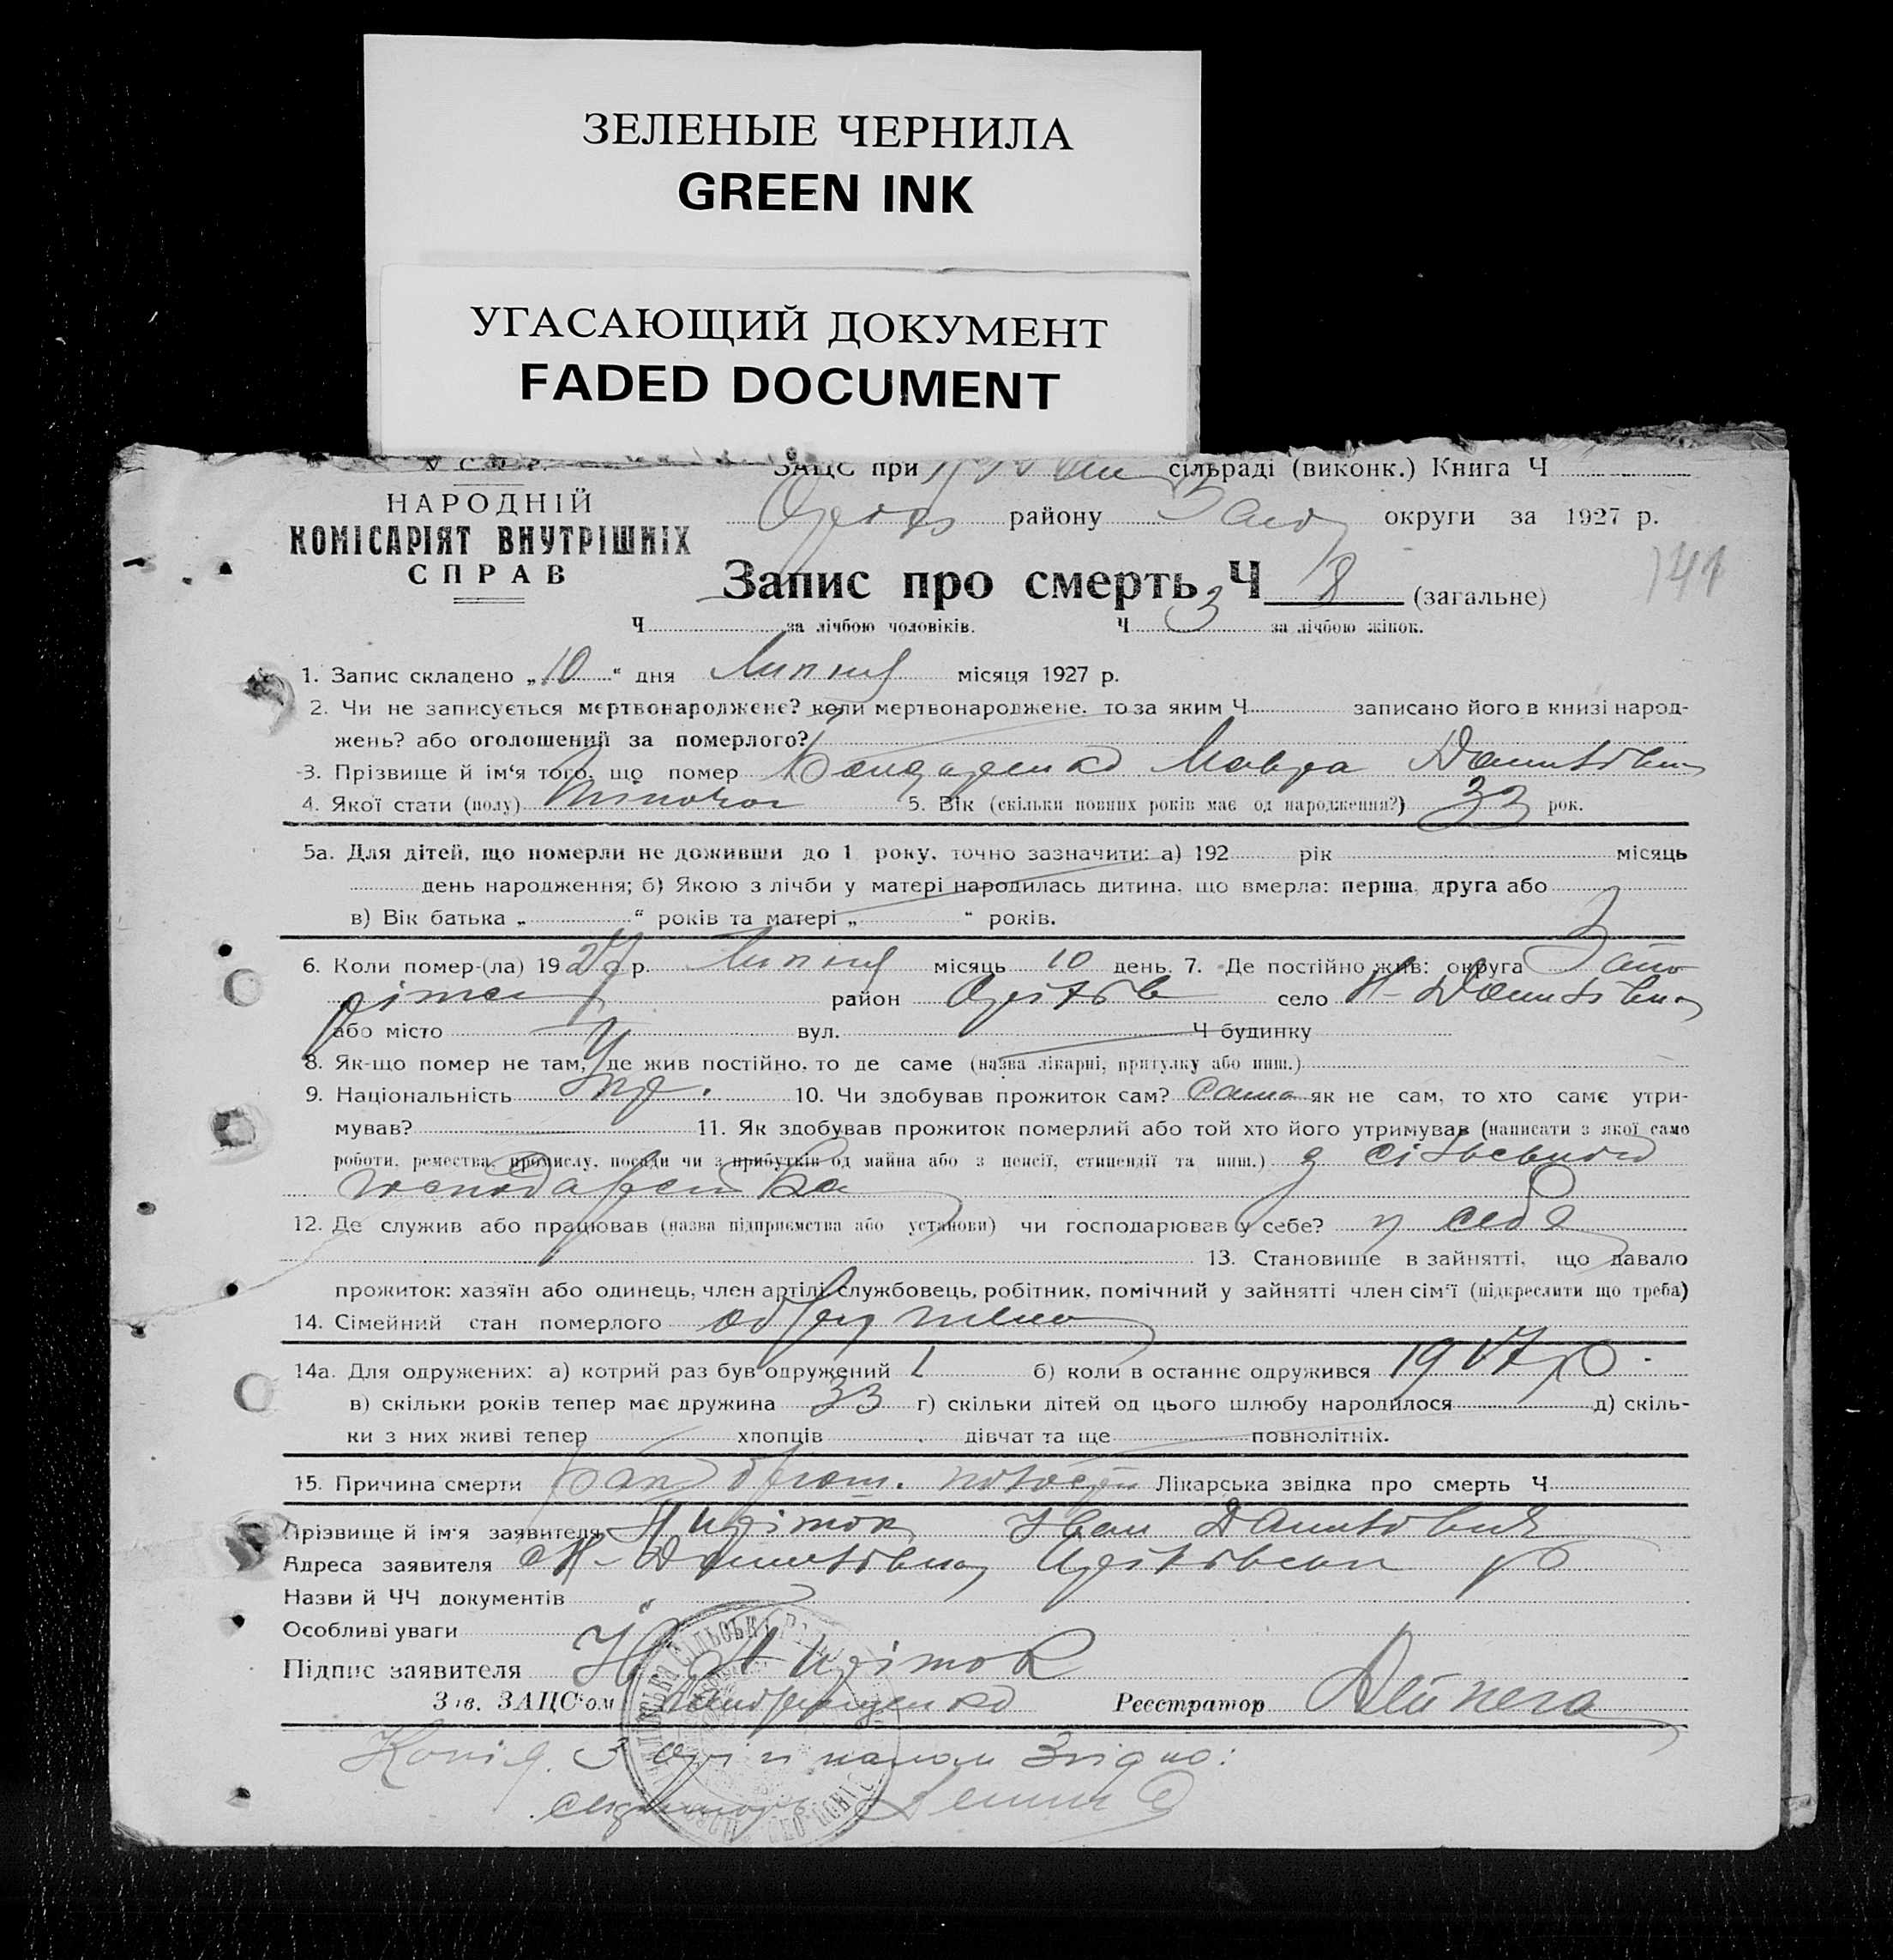 ЗЕЛЕНЫЕ ЧЕРНИЛА
GREEN INK
УГАСАЮЩИЙ ДОКУМЕНТ
FADED DOCUMENT
ЗАЦС при сільраді (виконк.) Книга Ч
НАРОДНІЙ
району округи за 1927 р.
КОМІСАРІЯТ ВНУТРІШНІХ
СПРАВ
Запис про смерть Ч 8 (загальне)
141
Ч за лічбою чоловіків. Ч 3 за лічбою жінок.
1. Запис складено „10“ дня Липня місяця 1927 р.
2. Чи не записується мертвонароджене? коли мертвонароджене, то за яким Ч записано його в книзі народ-
жень? або оголошений за померлого?
3. Прізвище й ім‘я того, що помер Бондаренко Мавра Данилівна
4. Якої стати (полу) жіноча 5. Вік (скільки повних років має од народження?) 33 рок.
5а. Для дітей, що померли не доживши до 1 року, точно зазначити: а) 192 рік місяць
день народження; б) Якою з лічби у матері народилась дитина, що вмерла: перша, друга або
в) Вік батька „ “ років та матері „ “ років.
6. Коли помер-(ла) 1927 р. Липня місяць 10 день. 7. Де постійно жив: округа Запо
ріжа район Оріхів село Н-Данилівка
або місто вул. Ч будинку
8. Як-що помер не там, де жив постійно, то де саме (назва лікарні, притулку або инш.)
9. Національність Укр. 10. Чи здобував прожиток сам? сама як не сам, то хто саме утри-
мував? 11. Як здобував прожиток померлий або той хто його утримував (написати з якої саме
роботи, ремества, промислу, посади чи з прибутків од майна або з пенсії, стипендії та инш.) з сільського
господарства
12. Де служив або працював (назва підприємства або установи) чи господарював у себе? у себе
13. Становище в зайнятті, що давало
прожиток: хазяїн або одинець, член артілі, службовець, робітник, помічний у зайнятті член сім‘ї (підкреслити що треба)
14. Сімейний стан померлого одружена
14а. Для одружених: а) котрий раз був одружений 1 б) коли в останнє одружився 1917 р
в) скільки років тепер має дружина 33 г) скільки дітей од цього шлюбу народилося д) скіль-
ки з них живі тепер хлопців дівчат та ще повнолітніх.
15. Причина смерти Лікарська звідка про смерть Ч
Прізвище й ім‘я заявителя Іван Данилович
Адреса заявителя с Н-Данилівка Оріхівськ р
Назви й ЧЧ документів
Особливі уваги
Підпис заявителя
Зав. ЗАЦС‘ом Реєстратор
Копія з оригіналом згідно: